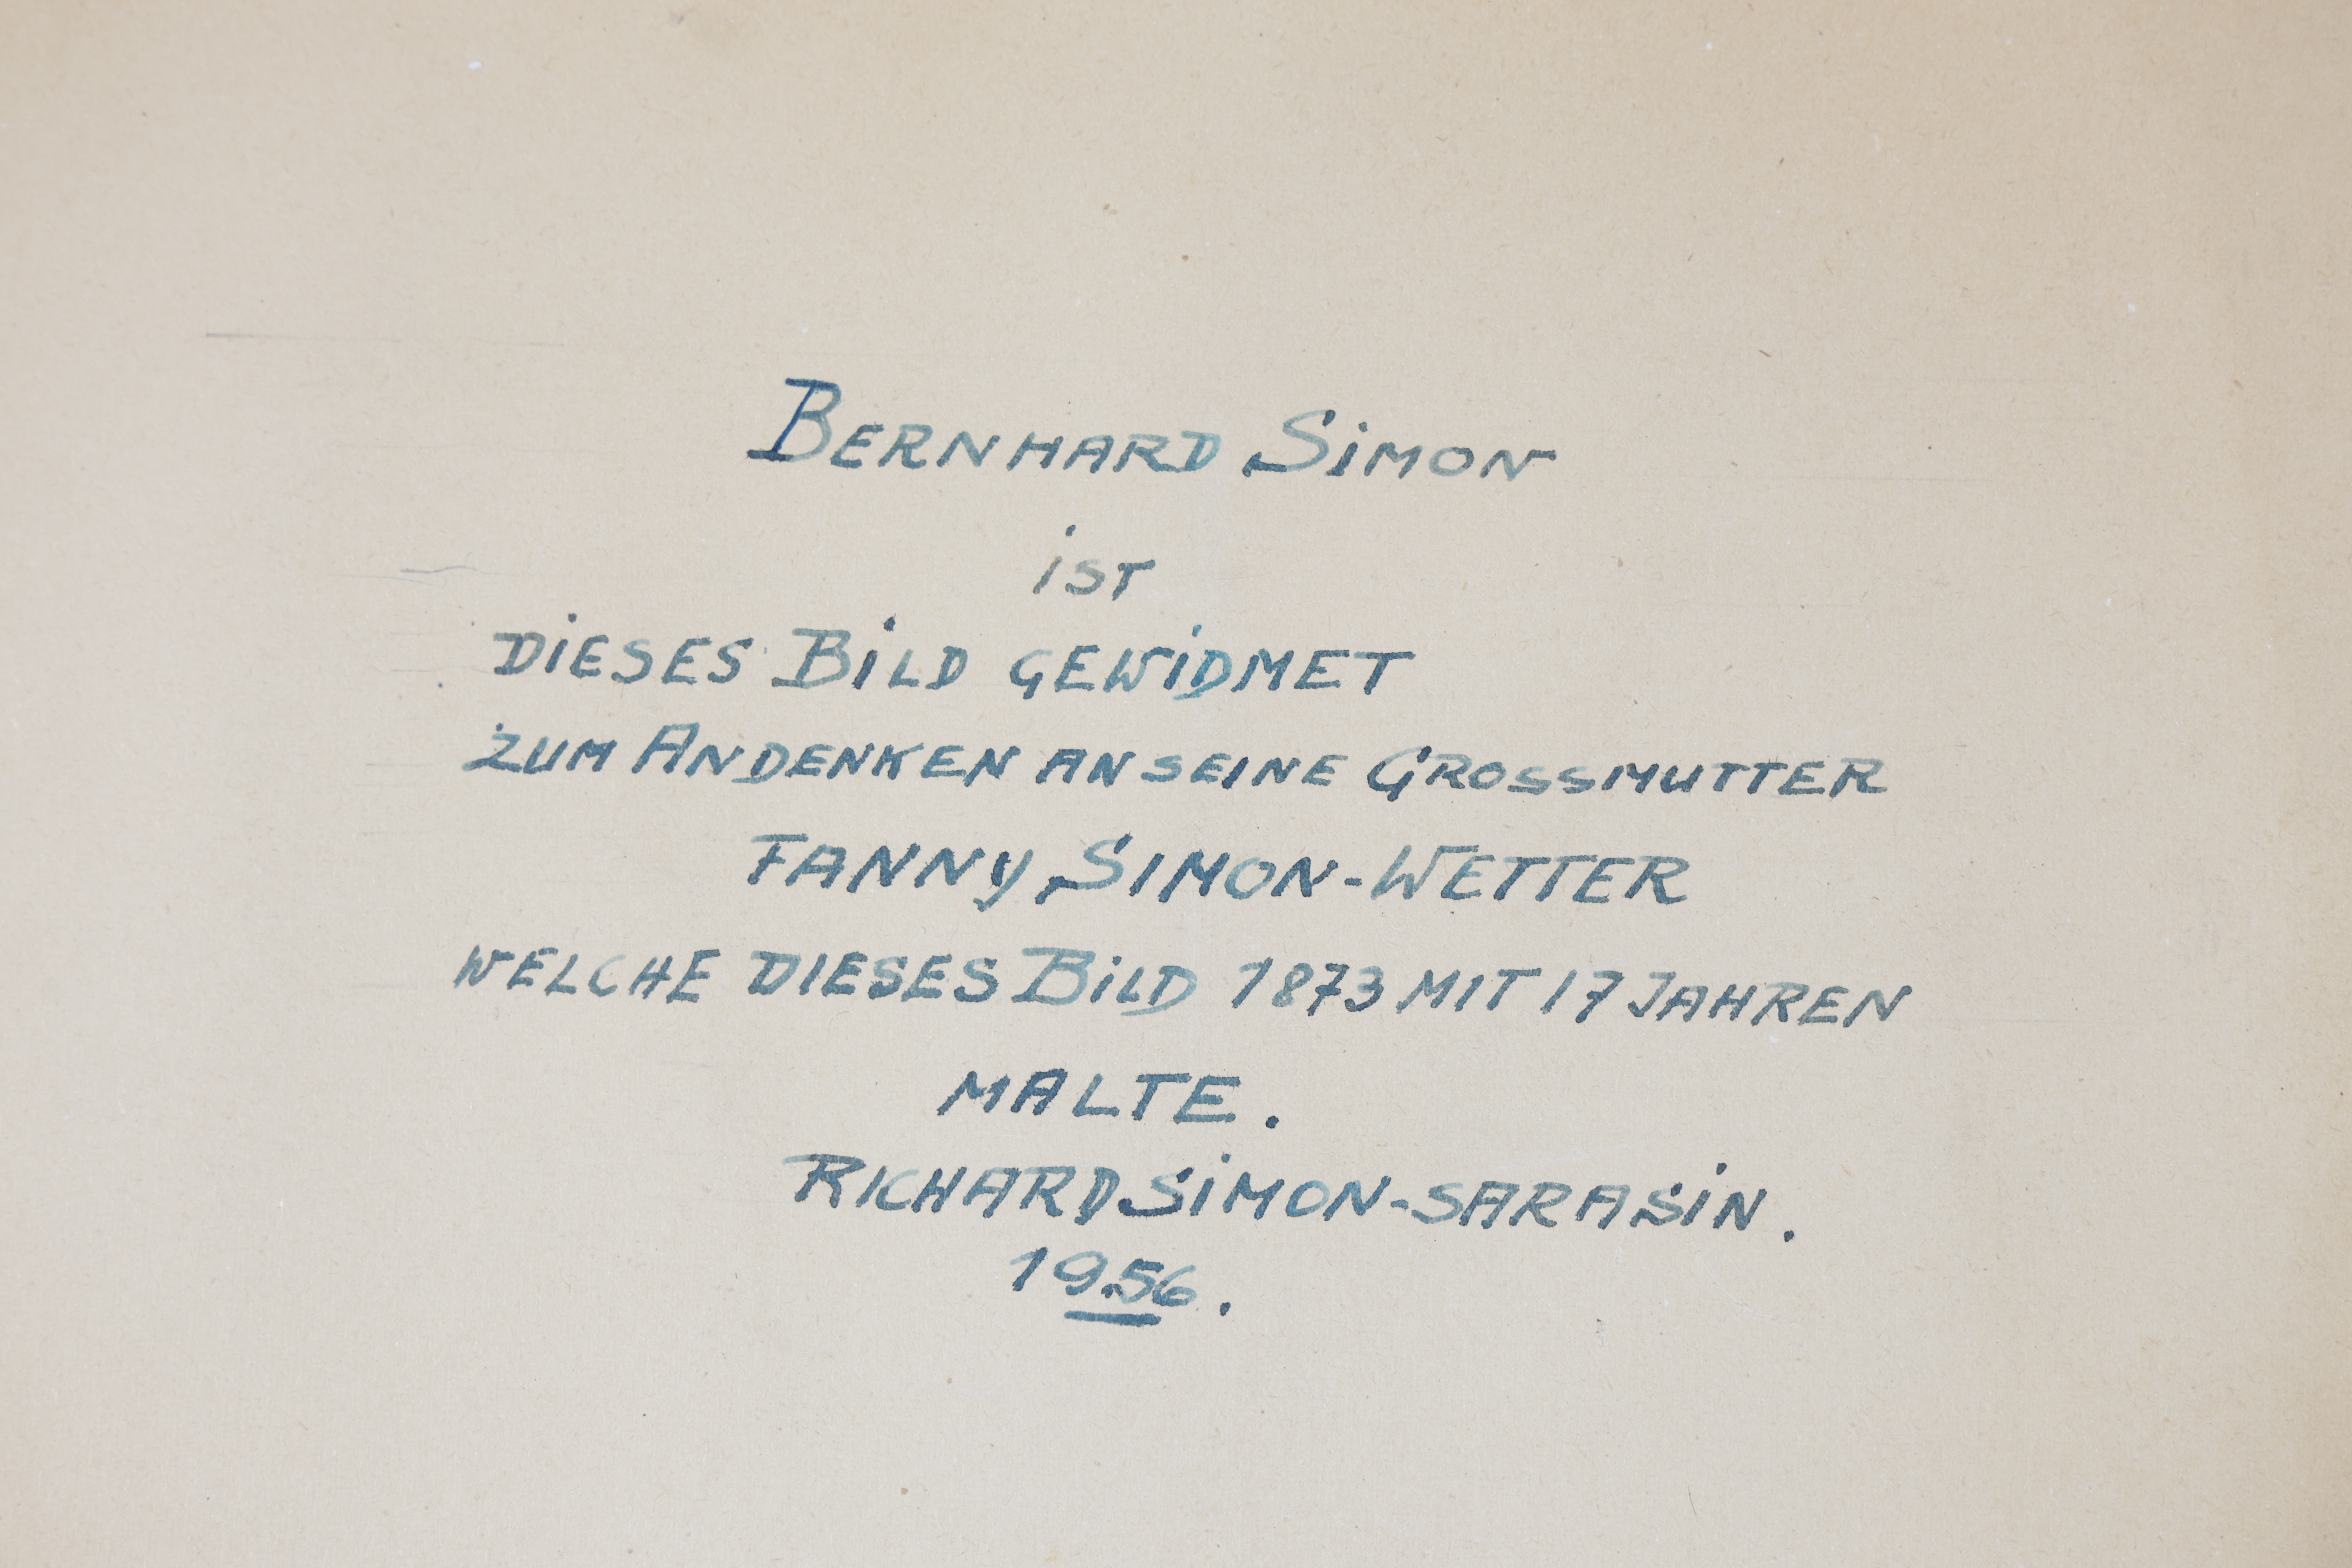 BERNHARD SiMON
iST
DiESES BiLD GEWiDMET
ZUM ANDENKEN AN SEINE GROSSMUTTER
FANNY SIMON-WETTER
WELCHE DIESES BiLD 1873 MIT 17 JAHREN
MALTE.
RICHARD SiMON-SARASiN.
1956.